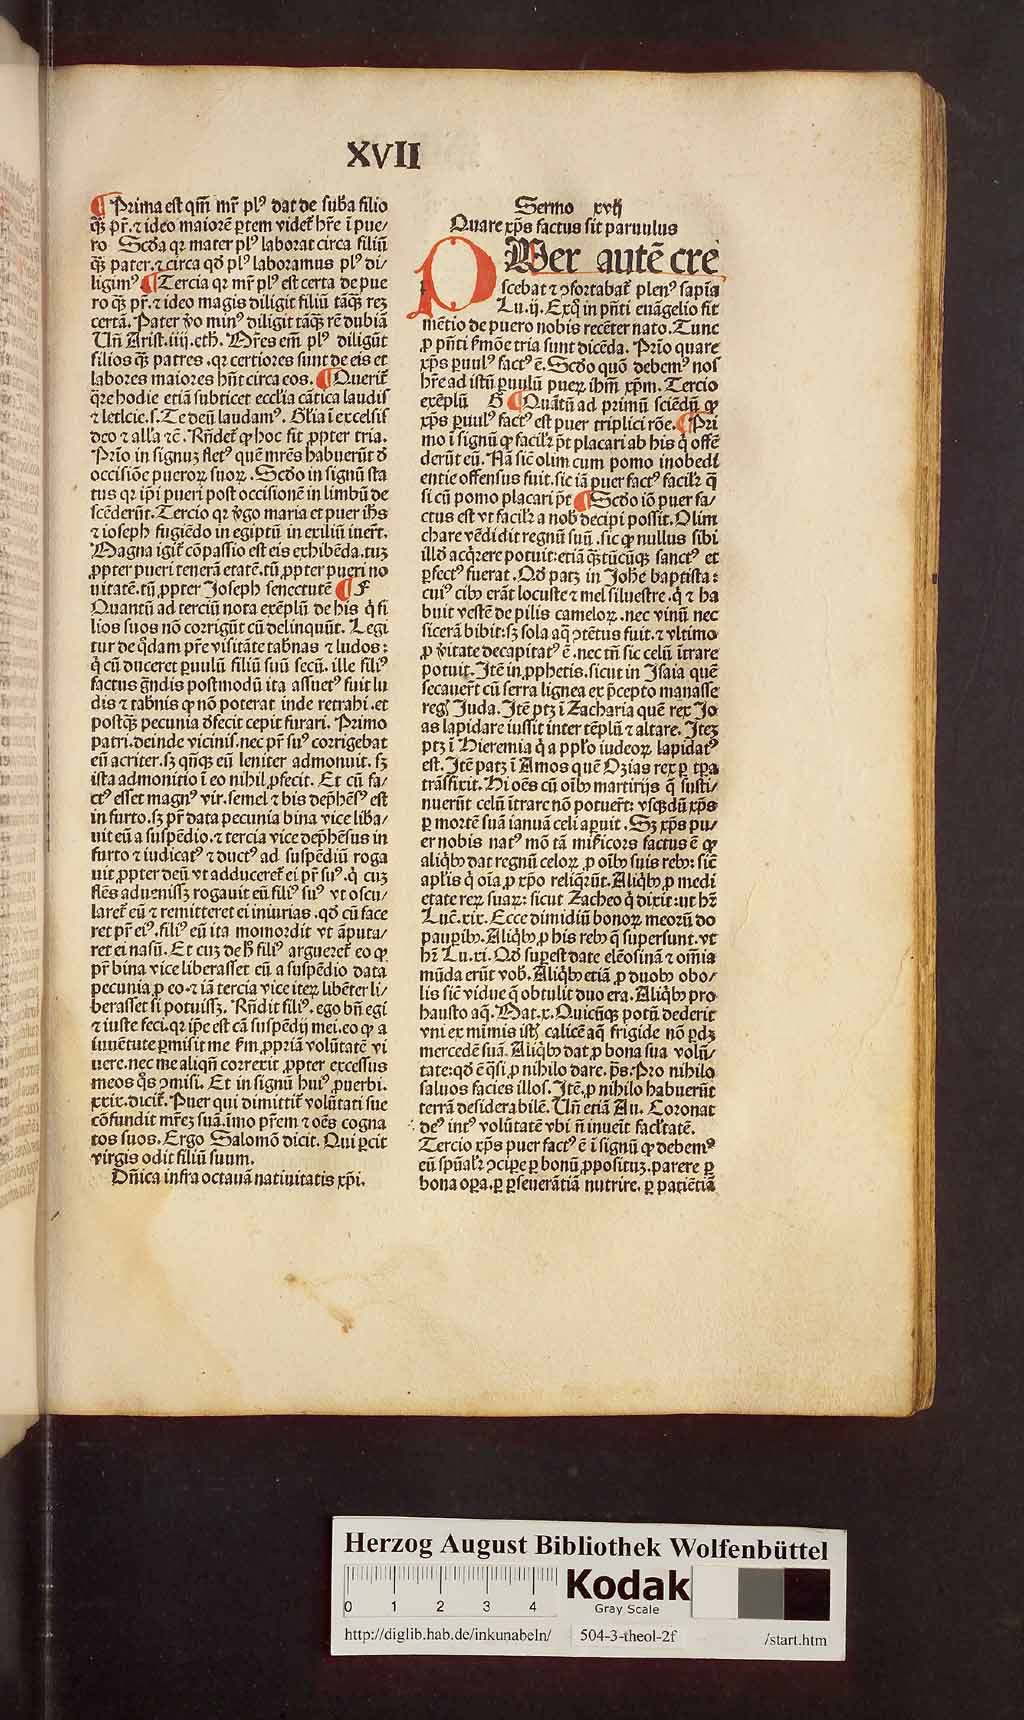 XVII
¶ Prima est qm̃ mr̃ plꝰ dat de sub̃a filio
qꝫ pr̃. ⁊ ideo maiorẽ ꝑtem videt̃ hr̃e ĩ pue/
ro Scd̃a qꝛ mater plꝰ laborat circa filiũ
qꝫ pater. ⁊ circa qđ plꝰ laboramus plꝰ di/
ligimꝰ ¶ Tercia qꝛ mr̃ plꝰ est certa de pue
ro qꝫ pr̃. ⁊ ideo magis diligit filiũ tãqꝫ reꝫ
certã. Pater ṽo minꝰ diligit tãqꝫ rẽ dubiã
Uñ Arist. iiij. eth. Mr̃es em̃ plꝰ diligũt
filios qꝫ patres .qꝛ certiores sunt de eis et
labores maiores hñt circa eos. ¶ Querit̃
q̃re hodie etiã subticet eccl̃ia cãtica laudis
⁊ leticie. s. Te deũ laudamꝰ. Gl̃ia ĩ excelsis
deo ⁊ all̃a ⁊c̃. Rñdet̃ ꝙ hoc fit ꝓpter tria.
Prĩo in signuꝫ fletꝰ quẽ mr̃es habuerũt đ
occisiõe pueroꝝ suoꝝ. Scđo in signũ sta
tus qꝛ ip̃i pueri post occisionẽ in limbũ de
scẽderũt. Tercio qꝛ ṽgo maria et puer ih̃s
⁊ ioseph fugiẽdo in egiptũ in exiliũ iuer̃t.
Magna igit̃ cõpassio est eis exhibẽda. tuꝫ
ꝓpter pueri tenerã etatẽ. tũ ꝓpter pueri no
uitatẽ. tũ ꝓpter Joseph senectutẽ ¶ F
Quantũ ad terciũ nota exẽplũ de his q̃ fi
lios suos nõ corrigũt cũ delinquũt. Legi
tur de q̃dam pr̃e visitãte tab̃nas ⁊ ludos:
q̃ cũ duceret ꝑuulũ filiũ suũ secũ. ille filiꝰ
factus g̃ndis postmodũ ita assuetꝰ fuit lu
dis ⁊ tab̃nis ꝙ nõ poterat inde retrahi .et
postqꝫ pecunia đfecit cepit furari. Primo
patri. deinde vicinis. nec pr̃ suꝰ corrigebat
eũ acriter. sꝫ qñqꝫ eũ leniter admonuit. sꝫ
ista admonitio ĩ eo nihil ꝓfecit. Et cũ fa/
ctꝰ esset magnꝰ vir. semel ⁊ bis dep̃hẽsꝰ est
in furto. sꝫ pr̃ data pecunia bina vice lib̃a/
uit eũ a suspẽdio. ⁊ tercia vice dep̃hẽsus in
furto ⁊ iudicatꝰ ⁊ ductꝰ ad suspẽdiũ roga
uit ꝓpter deũ vt adduceret̃ ei pr̃ suꝰ. q̃ cuꝫ
flẽs adueniss̃ rogauit eũ filiꝰ suꝰ vt oscu/
laret̃ eũ ⁊ remitteret ei iniurias .qđ cũ face
ret pr̃ eiꝰ. filiꝰ eũ ita momordit vt ãputa/
ret ei nasũ. Et cuꝫ de h̃ filiꝰ argueret̃ eo ꝙ
pr̃ bina vice liberasset eũ a suspẽdio data
pecunia ꝓ eo. ⁊ iã tercia vice iteꝝ libẽter li/
berasset si potuiss̃. Rñdit filiꝰ. ego bñ egi
⁊ iuste feci. qꝛ ip̃e est cã suspẽdij mei. eo ꝙ a
iuuẽtute ꝑmisit me s̃m ꝓpriã volũtatẽ vi
uere. nec me aliqñ correxit ꝓpter excessus
meos q̃s ↄmisi. Et in signũ huiꝰ ꝓuerbi.
xxix. dicit̃. Puer qui dimittit̃ volũtati sue
cõfundit mr̃eꝫ suã. ĩmo pr̃em ⁊ oẽs cogna
tos suos. Ergo Salomõ dicit. Qui ꝑcit
virgis odit filiũ suum.
Dñica infra octauã natiuitatis xp̃i.
Sermo xvij
Quare xp̃s factus sit paruulus
PUer autẽ cre
scebat ⁊ ↄfortabat̃ plenꝰ sap̃ia
Lu. ij. Exq̃ in pñti euãgelio fit
mẽtio de puero nobis recẽter nato. Tunc
ꝓ pñti s̃mõe tria sunt dicẽda. Prĩo quare
xp̃s ꝑuulꝰ factꝰ ẽ. Scđo quõ debemꝰ nos
hr̃e ad istũ ꝑuulũ pueꝝ ih̃m xp̃m. Tercio
exẽplũ G ¶ Quãtũ ad primũ sciẽdũ ꝙ
xp̃s ꝑuulꝰ factꝰ est puer triplici rõe. ¶ Pri
mo ĩ signũ ꝙ facil̃r p̃t placari ab his q̃ offẽ
derũt eũ. Nã sic̃ olim cum pomo inobedĩ
entie offensus fuit. sic iã puer factꝰ facil̃r q̃
si cũ pomo placari p̃t ¶ Scđo iõ puer fa/
ctus est vt facil̃r a nob̃ decipi possit. Olim
chare vẽdidit regnũ suũ .sic ꝙ nullus sibi
illđ acq̃rere potuit: etiã qꝫtũcũqꝫ sanctꝰ et
ꝑfectꝰ fuerat .Qđ patꝫ in Joh̃e baptista:
cuiꝰ cibꝰ erãt locuste ⁊ mel siluestre .q̃ ⁊ ha
buit vestẽ de pilis cameloꝝ .nec vinũ nec
sicerã bibit: sꝫ sola aq̃ ↄtẽtus fuit. ⁊ vltimo
ꝓ ṽitate decapitatꝰ ẽ .nec tñ sic celũ ĩtrare
potuit. Itẽ in ꝓphetis. sicut in Isaia quẽ
secauer̃t cũ serra lignea ex p̃cepto manasse
reg̃ Juda. Itẽ ptꝫ ĩ Zacharia quẽ rex Jo
as lapidare iussit inter tẽplũ ⁊ altare. Iteꝫ
ptꝫ ĩ Hieremia q̃ a pp̃lo iudeoꝝ lapidatꝰ
est. Itẽ patꝫ ĩ Amos quẽ Ozias rex ꝑ tp̃a
trãsfixit. Hi oẽs cũ oĩbꝰ martirijs q̃ susti/
nuerũt celũ ĩtrare nõ potuer̃t: vsqꝫdũ xp̃s
ꝑ mortẽ suã ianuã celi aꝑuit. Sꝫ xp̃s pu/
er nobis natꝰ mõ tã mis̃icors factus ẽ ꝙ
aliqb̃ꝰ dat regnũ celoꝝ ꝓ oĩbꝰ suis rebꝰ: sic̃
apl̃is q̃ oĩa ꝓ xp̃o reliq̃rũt. Aliqb̃ꝰ ꝓ medi
etate reꝝ suaꝝ: sicut Zacheo q̃ dixit: ut hr̃
Luc̃. xix. Ecce dimidiũ bonoꝝ meorũ do
pauꝑibꝰ. Aliqb̃ꝰ ꝓ his rebꝰ q̃ supersunt. vt
hr̃ Lu. xi. Qđ suꝑest date eleõsinã ⁊ om̃ia
mũda erũt vob̃. Aliqb̃ꝰ etiã ꝓ duobꝰ obo/
lis sic̃ vidue q̃ obtulit duo era. Aliqb̃ꝰ pro
hausto aq̃. Mat. x. Quicũqꝫ potũ dederit
vni ex mĩmis ist̃ calicẽ aq̃ frigide nõ ꝑdꝫ
mercedẽ suã. Aliqb̃ꝰ dat ꝓ bona sua volũ/
tate: qđ ẽ q̃si ꝓ nihilo dare. p̃s. Pro nihilo
saluos facies illos. Itẽ ꝓ nihilo habuerũt
terrã desiderabilẽ. Uñ etiã Au. Coronat
deꝰ intꝰ volũtatẽ vbi ñ inueit facl̃tatẽ.
Tercio xp̃s puer factꝰ ẽ ĩ signũ ꝙ debemꝰ
eũ sp̃ual̃r ↄciꝑe ꝑ bonũ ꝓpositũ. parere ꝑ
bona oꝑa. ꝑ ꝑseuerãtiã nutrire. ꝑ patiẽtiã
Herzog August Bibliothek Wolfenbüttel
0 1 2 3 4
Kodak
Gray Scale
http://diglib.hab.de/inkunabeln/ 504-3-theol-2f /start.htm